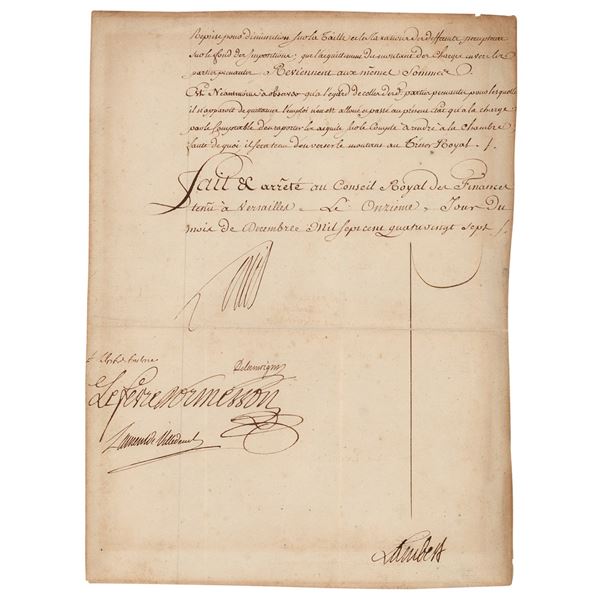 Reprise pour diminution sur la Taille
sur le fond des Impositions, que l'acquittement du montant des Charges envers les
parties prenantes Reviennent aux mêmes Sommes
Est Néantmoins à observer qu'a l'égard de celles des d. parties prenantes pour lesquelles
il n'apparoit de quittance l'employ n'en est alloué et passé au présent Etat qu'a la charge
par le Comptable d'en raporter les acquits sur le Compte à rendre à la Chambre
faute de quoi il sera tenu d'en verser le montant au Trésor Royal ./.
Fait & arrêté au Conseil Royal des Finances
tenu à Versailles, Le Onzième Jour du
mois de Decembre Mil Sept cent quatrevingt Sept ./.
Louis
Delamoignon
Lefevre dormesson
Laurent de Villedeuil
Lambert